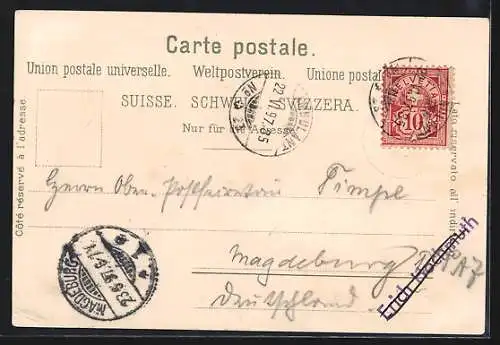 Carte postale.
Union postale universelle. Weltpostverein. Unione postale
SUISSE. SCHWEIZ. SVIZZERA.
Nur für die Adresse.
Côté réservé à l'adresse
Lato riservato all'indirizzo
HELVETIA
10
AMBULANT
22 VI 97
MAGDEBURG
23 6 97
1
Herrn Ober-Postsecretair
Timpe
Magdeburg
Deutschland
A7
Erich